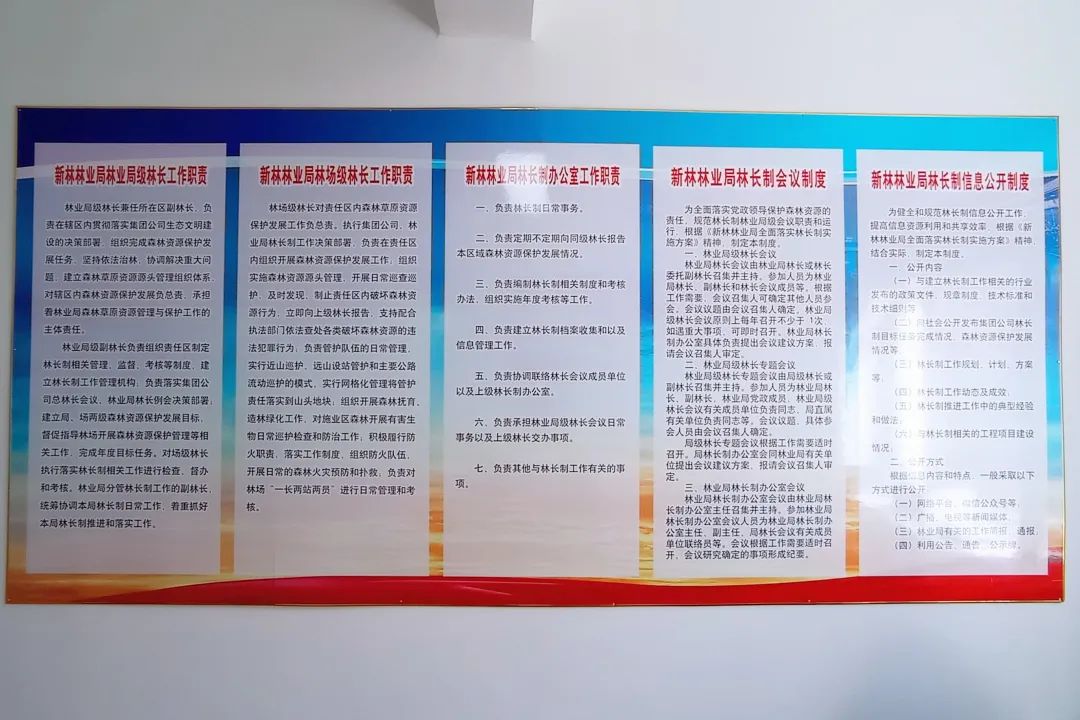 新林林业局林业局级林长工作职责
林业局级林长兼任所在区副林长，负
责在辖区内贯彻落实集团公司生态文明建
设的决策部署，组织完成森林资源保护发
展任务，坚持依法治林，协调解决重大问
题，建立森林草原资源源头管理组织体系，
对辖区内森林资源保护发展负总责，承担
着林业局森林草原资源管理与保护工作的
主体责任。
林业局级副林长负责组织责任区制定
林长制相关管理、监督、考核等制度，建
立林长制工作管理机构，负责落实集团公
司总林长会议、林业局林长例会决策部署；
建立局、场两级森林资源保护发展目标，
督促指导林场开展森林资源保护管理等相
关工作，完成年度目标任务。对场级林长
执行落实林长制相关工作进行检查、督办
和考核。林业局分管林长制工作的副林长，
统筹协调本局林长制日常工作，着重抓好
本局林长制推进和落实工作。
新林林业局林场级林长工作职责
林场级林长对责任区内森林草原资源
保护发展工作负总责。执行集团公司、林
业局林长制工作决策部署，负责在责任区
内组织开展森林资源保护发展工作，组织
实施森林资源源头管理，开展日常巡查巡
护，及时发现、制止责任区内破坏森林资
源行为，立即向上级林长报告，支持配合
执法部门依法查处各类破坏森林资源的违
法犯罪行为；负责管护队伍的日常管理，
实行近山巡护、远山设站管护和主要公路
流动巡护的模式，实行网格化管理将管护
责任落实到山头地块，组织开展森林抚育、
造林绿化工作，对施业区森林开展有害生
物日常巡护检查和防治工作；积极履行防
火职责，落实工作制度，组织防火队伍，
开展日常的森林火灾预防和扑救，负责对
林场“一长两站两员”进行日常管理和考
核。
新林林业局林长制办公室工作职责
一、负责林长制日常事务。
二、负责定期不定期向同级林长报告
本区域森林资源保护发展情况。
三、负责编制林长制相关制度和考核
办法，组织实施年度考核等工作。
四、负责建立林长制档案收集和以及
信息管理工作。
五、负责协调联络林长会议成员单位
以及上级林长制办公室。
六、负责承担林业局级林长会议日常
事务以及上级林长交办事项。
七、负责其他与林长制工作有关的事
项。
新林林业局林长制会议制度
为全面落实党政领导保护森林资源的
责任，规范林长制林业局级会议职责和运
行，根据《新林林业局全面落实林长制实
施方案》精神，制定本制度。
一、林业局级林长会议
林业局级林长会议由林业局林长或林长
委托副林长召集并主持，参加人员为林业
局林长、副林长和林长会议成员等。根据
工作需要，会议召集人可确定其他人员参
会。会议议题由会议召集人确定。林业局
级林长会议原则上每年召开不少于 1次，
如遇重大事项，可即时召开。林业局林长
制办公室具体负责提出会议建议方案，报
请会议召集人审定。
二、林业局级林长专题会议
林业局级林长专题会议由局级林长或
副林长召集并主持。参加人员为林业局林
长、副林长，林业局党政成员，林业局级
林长会议有关成员单位负责同志，局直属
有关单位负责同志等。会议议题、具体参
会人员由会议召集人确定。
局级林长专题会议根据工作需要适时
召开。局林长制办公室会同林业局有关单
位提出会议建议方案，报请会议召集人审
定。
三、林业局林长制办公室会议
林业局林长制办公室会议由林业局林
长制办公室主任召集并主持。参加林业局
林长制办公室会议人员为林业局林长制办
公室主任、副主任，局林长会议有关成员
单位联络员等。会议根据工作需要适时召
开，会议研究确定的事项形成纪要。
新林林业局林长制信息公开制度
为健全和规范林长制信息公开工作，
提高信息资源利用和共享效率，根据《新
林林业局全面落实林长制实施方案》精神，
结合实际，制定本制度。
一、公开内容
（一）与建立林长制工作相关的行业
发布的政策文件、规章制度、技术标准和
技术细则等；
（二）向社会公开发布集团公司林长
制目标任务完成情况、森林资源保护发展
情况等；
（三）林长制工作规划、计划、方案
等；
（四）林长制工作动态及成效；
（五）林长制推进工作中的典型经验
和做法；
（六）与林长制相关的工程项目建设
情况；
二、公开方式
根据信息内容和特点，一般采取以下
方式进行公开：
（一）网络平台、微信公众号等；
（二）广播、电视等新闻媒体；
（三）林业局有关的工作简报、通报；
（四）利用公告、通告、公示牌。